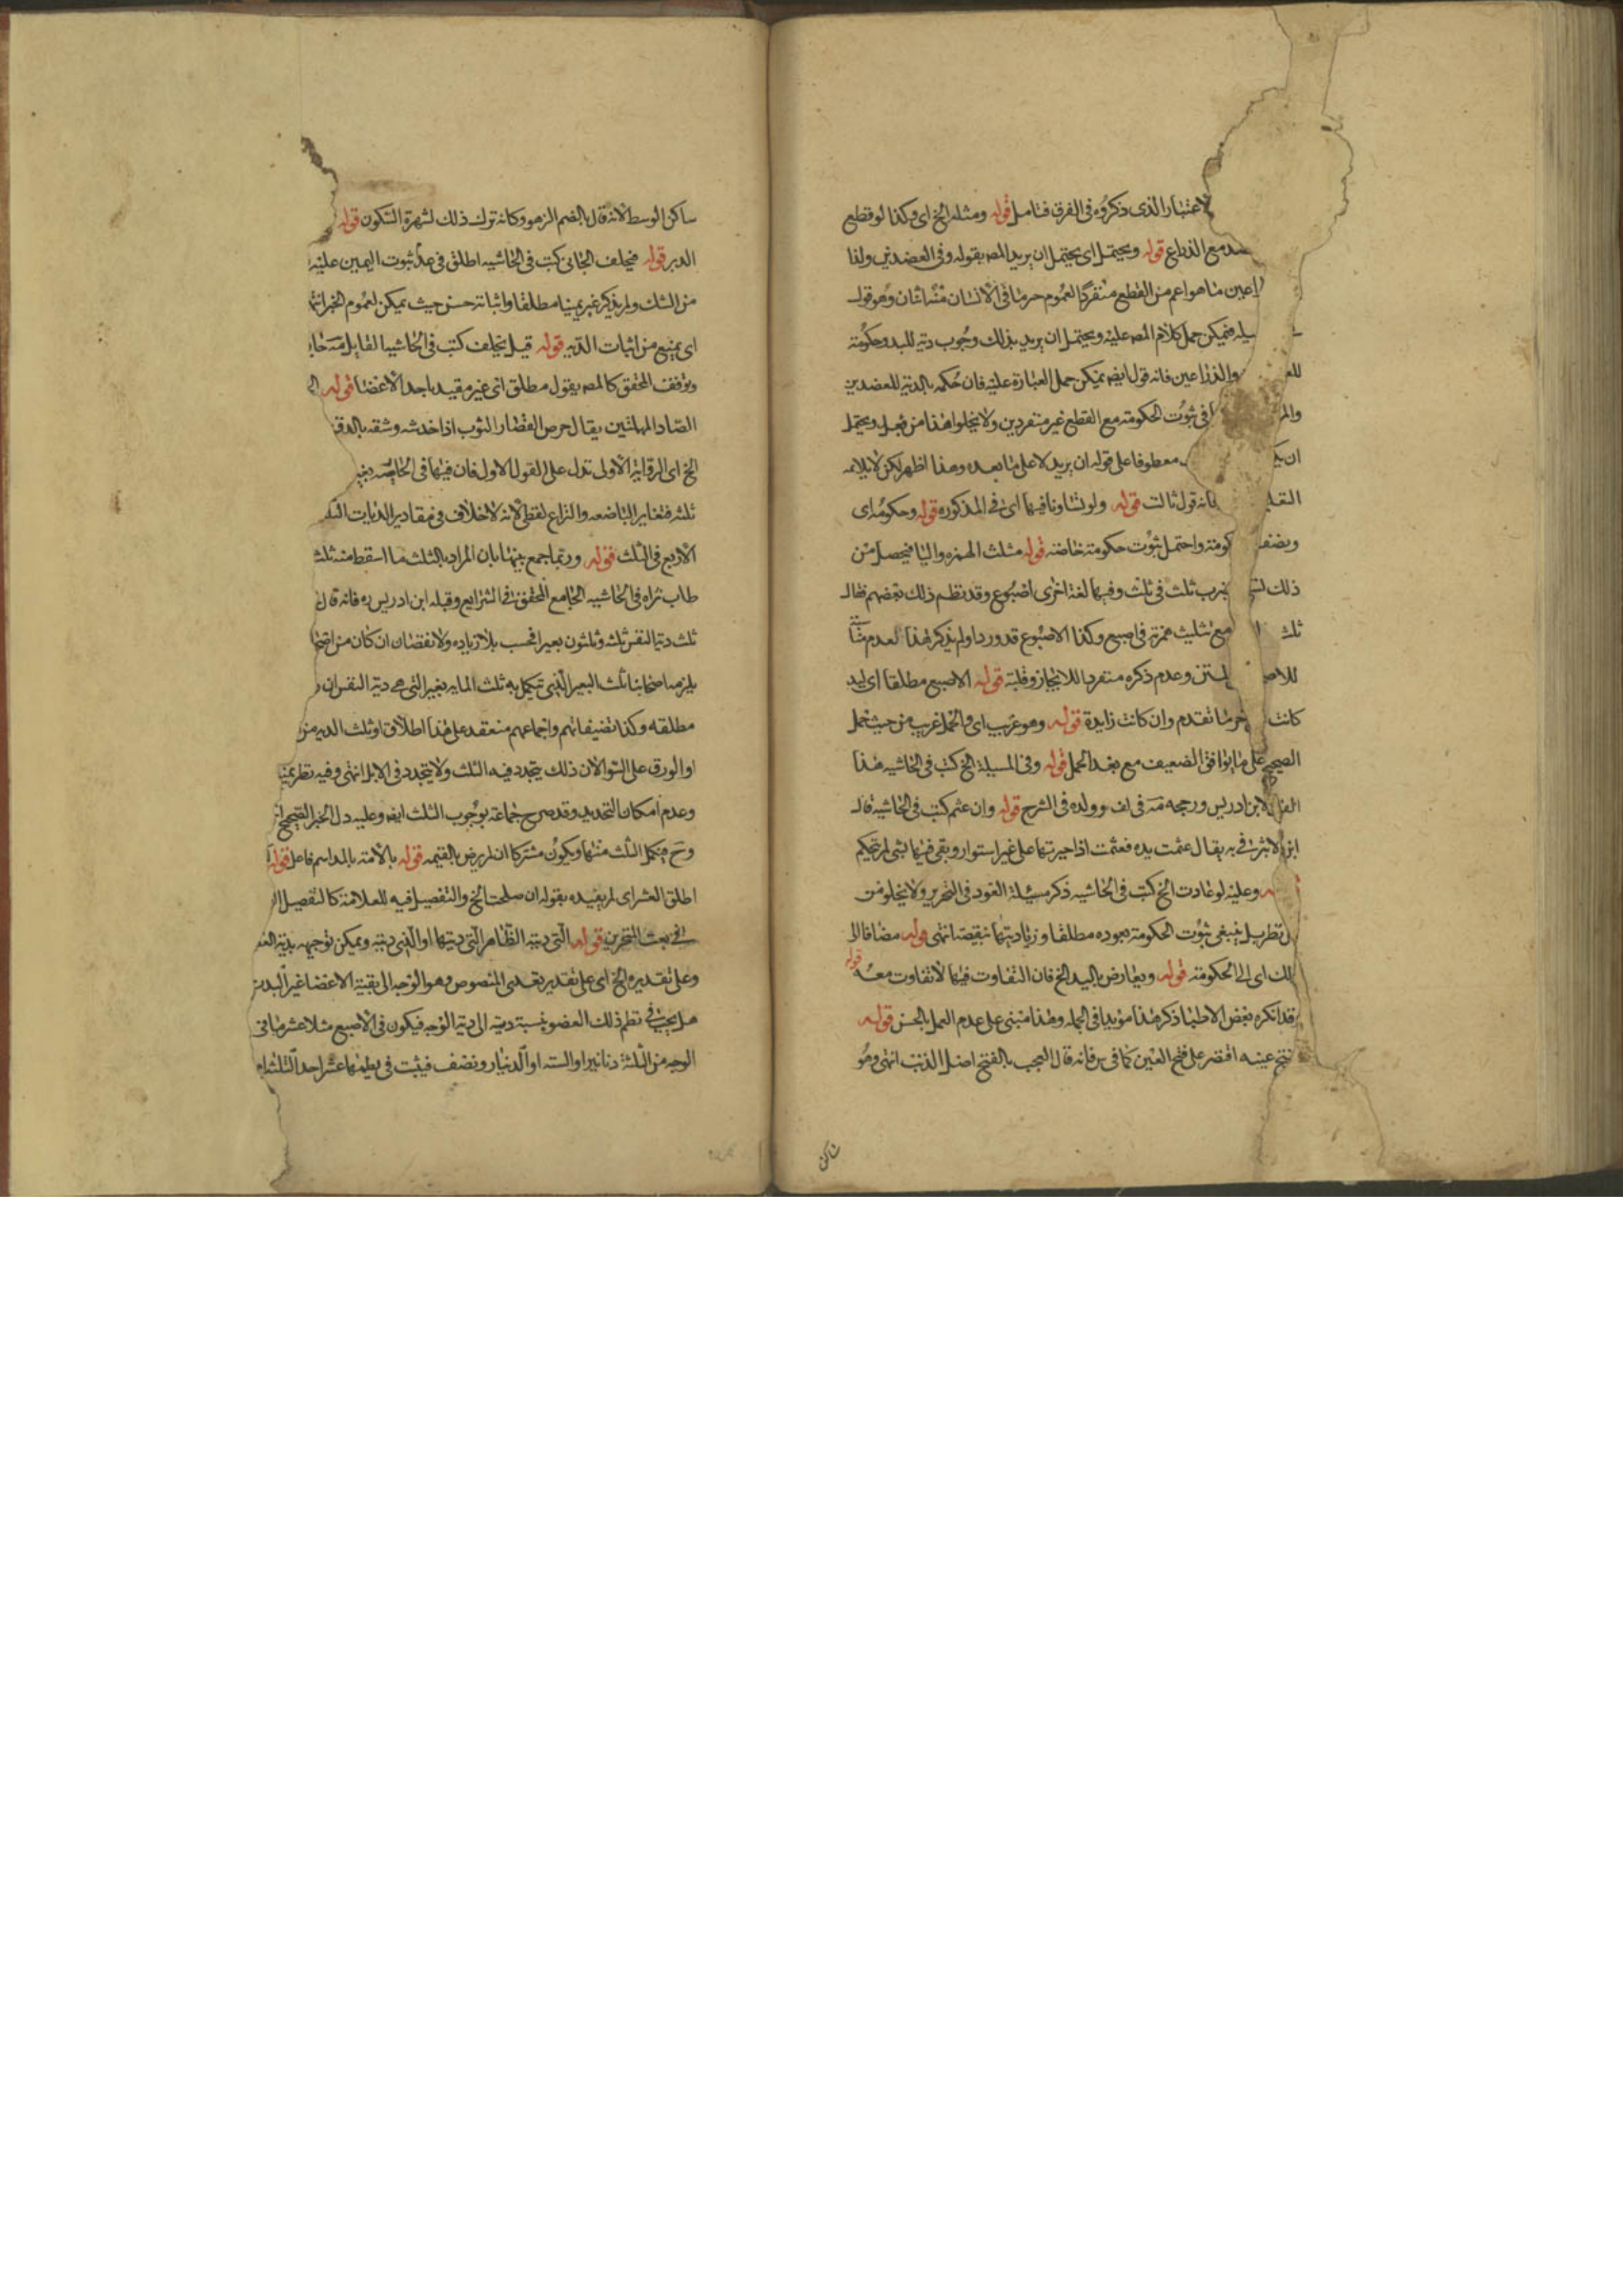 لاعتبار الذى ذكروه فى الفرق فتامل قوله ومثله الخ اى وكذا لو قطع
مع الذراع قوله ويحتمل اى يحتمل ان يريد المصـ بقوله وفى العضدين ولذا
اعين ما هو اعم من القطع منفردا لعموم خبر ما فى الانسان منه اثنان وهو قول
فيمكن حمل كلام المصـ عليه ويحتمل ان يريد بذلك وجوب دية لليد وحكومة
للعـ والذراعين فانه قول ايضـ يمكن حمل العبارة عليه فان حكمه بالدية للعضدين
والمر فى ثبوت الحكومة مع القطع غير منفردين ولا يخلو هذا من بعد ويحتمل
ان يكـ معطوفا على قوله ان يريد لا على ما بعده وهذا اظهر لكن لا يلايمه
فانه قول ثالث قوله ولو تساويا فيها اى فى المذكوره قوله وحكومة اى
كومة واحتمل ثبوت حكومة خاصة قوله مثلث الهمزه والبا فيحصل من
ذلك ضرب ثلث فى ثلث وفيها لغة اخرى اصبوع وقد نظم ذلك بعضهم فقال
ثلث مع تثليث همزته فى اصبع وكذا الاصبوع قد وردا ولم يذكر هذا لعدم
للاصـ وعدم ذكره منفردا للايجاز وقلته قوله الاصبع مطلقا اى ليد
كانت ما تقدم وان كانت زايدة قوله وهو غريب اى والحمل غريب من حيث حمل
الصحيح على ما يوافق الضعيف مع بعد الحمل قوله وفى المسيلة الخ كتب فى الحاشيه هذا
لابن ادريس ورجحه مه فى اف وولده فى الشرح قوله وان عثم كتب فى الحاشية قال
ابن الاثير فى يه يقال عثمت يده فعثمت اذا جبرتها على غير استوار وبقى فيها شى لم تحكم
وعليه لو عادت الخ كتب فى الحاشيه ذكر مسيلة العود فى التحرير ولا يخلو من
نظر بل ينبغى ثبوت الحكومة بعوده مطلقا وزيادتها بنقيصة انتهى قوله مضافا الى
ذلك اى الى الحكومة قوله ويعارض باليد الخ فان التفاوت فيها لا تفاوت معه قوله
قد انكره بعض الاطبا ذكر هذا مويدا فى الجمله وهذا مبنى على عدم العمل بالحسن قوله
فتح عينه اقتصر على فتح العين كما فى س فانه قال العجب بالفتح اصل الذنب انتهى وهو
ساكن
ساكن الوسط لانه قال بالضم الزهو وكانه ترك ذلك لشهرة السكون قوله
الدبر قوله فيحلف الجانى كتب فى الحاشيه اطلق فى عد ثبوت اليمين عليه
من الشك ولم يذكر غير يمينا مطلقا واثباته حسن حيث يمكن لعموم الخبر انتهى
اى يمنع من اثبات الدية قوله قيل يحلف كتب فى الحاشيه القايل مه
وتوقف المحقق كالمصـ يقول مطلق اى غير مقيد باحد الاعضا قوله
الصاد المهملتين يقال حرص القصار الثوب اذا خدشه وشقه بالدق
الخ اى الرواية الاولى تدل على القول الاول فان فيها فى الخاصه بعير
ثلثه فتغاير الباضعه والنزاع لفظى لانه لا خلاف فى مقادير الديات
الاربع فى الثلث قوله وربما جمع بينهما بان المراد بالثلث ما اسقط منه ثلث
طاب ثراه فى الحاشيه الجامع المحقق فى الشرايع وقبله ابن ادريس ره فانه قال
ثلث دية النفس ثلثه وثلثون بعيرا فحسب بلا زياده ولا نقصان ان كان من
يلزم اصحابنا ثلث البعير الذى تكمل به ثلث المايه بعير التى هى دية النفس ان
مطلقه وكذا تصنيفاتهم واجماعهم منعقد على هذا اطلاق او ثلث الديه من
او الورق على السوا لان ذلك يتجدد فيه الثلث ولا يتجدد فى الابل انتهى وفيه نظر
وعدم امكان التحديد وقد صرح جماعة بوجوب الثلث ايضـ وعليه دل الخبر الصحيح
وح فيكمل الثلث منها ويكون مشتركا ان لم يرض بالقيمه قوله بالامة بالمد اسم فاعل قوله
اطلق العشر اى لم يقيده بقوله ان صلحت الخ والتفصيل فيه للعلامة كالتفصيل
فى بحث المنخرين قوله التى دية الظاهر التى ديتها او الذى ديته ويمكن توجيهه بدية
وعلى تقديره الخ اى على تقدير تعدى المنصوص وهو الوجه الى بقية الاعضا غير البدن
هل يجب فى نظم ذلك العضو بنسبة ديته الى دية الوجه فيكون فى الاصبع مثلا عشر ما فى
الوجه من الثلثة دنانير او الستة او الدينار ونصف فيثبت فى لطمها عشر احد الثلثة